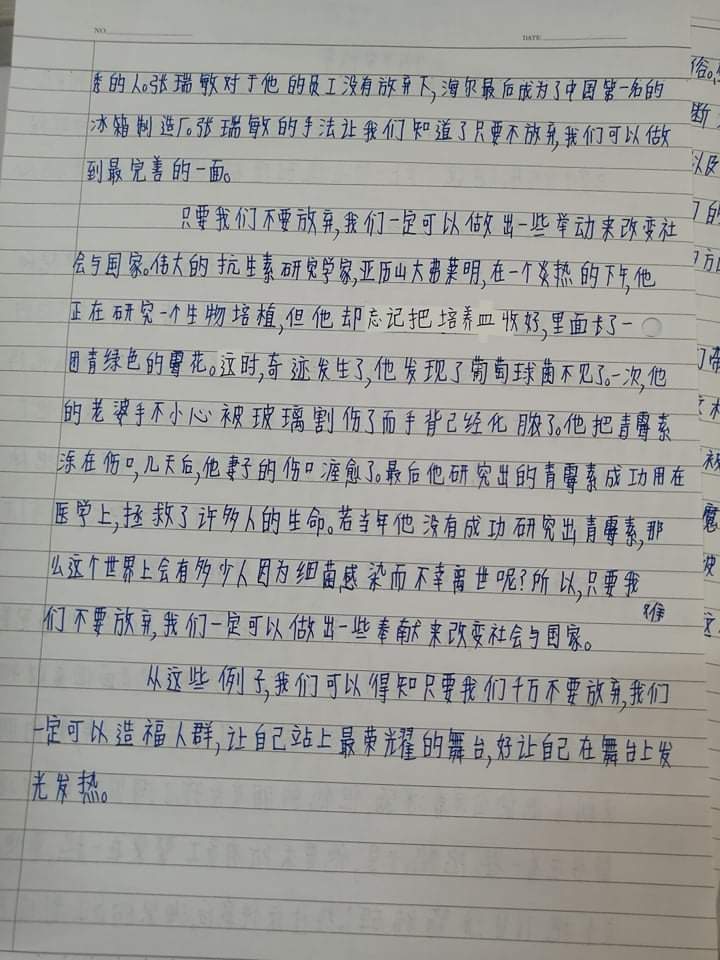 NO.
DATE
的人。张瑞敏对于他的员工没有放弃下,海尔最后成为了中国第一名的
冰箱制造厂。张瑞敏的手法让我们知道了只要不放弃,我们可以做
到最完善的一面。
只要我们不要放弃,我们一定可以做出一些举动来改变社
会与国家。伟大的抗生素研究学家,亚历山大弗莱明,在一个炎热的下午,他
正在研究一个生物培植,但他却忘记把培养皿收好,里面卡了一
团青绿色的霉花。这时,奇迹发生了,他发现了葡萄球菌不见了。一次,他
的老婆手不小心被玻璃割伤了而手背已经化脓了。他把青霉素
涂在伤口,几天后,他妻子的伤口痊愈了。最后他研究出的青霉素成功用在
医学上,拯救了许多人的生命。若当年他没有成功研究出青霉素,那
么这个世界上会有多少人因为细菌感染而不幸离世呢?所以,只要我
们不要放弃,我们一定可以做出一些奉献来改变社会与国家。
从这些例子,我们可以得知只要我们千万不要放弃,我们
一定可以造福人群,让自己站上最荣光耀的舞台,好让自己在舞台上发
光发热。